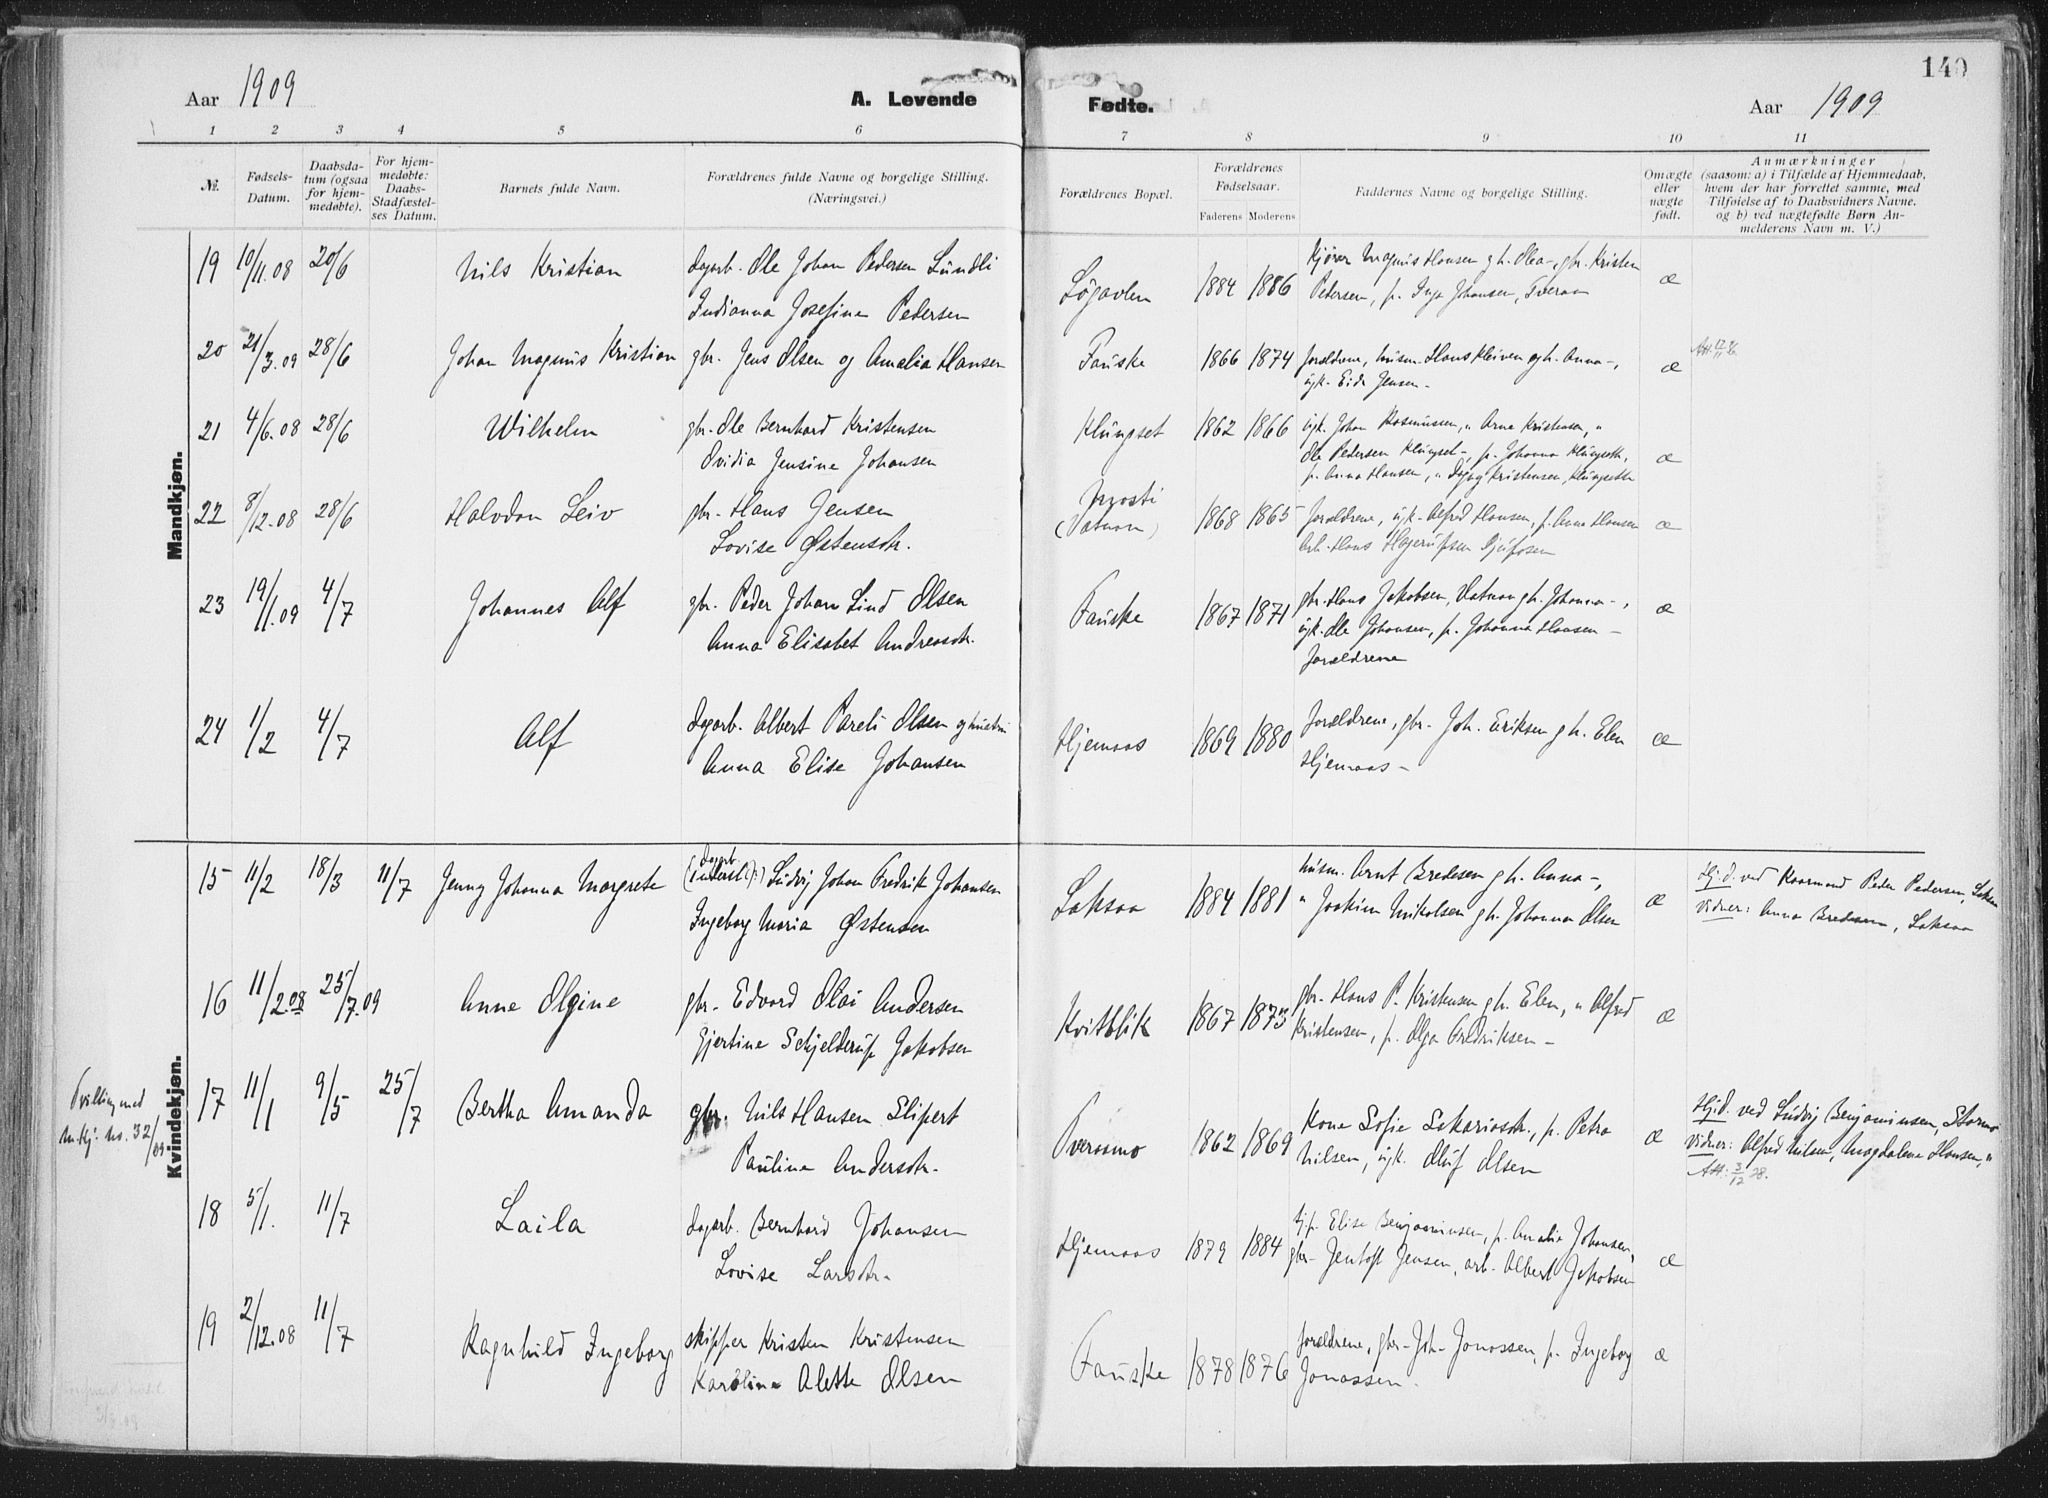 140
Aar 1909
A. Levende Fødte.
Aar 1909
1 2 3 4 5 6 7 8 9 10 11
№. Fødsels-Datum. Daabsda-tum (ogsaa for hjem-medøbte). For hjem-medøbte: Daabs-Stadfæstel-ses Datum. Barnets fulde Navn. Forældrenes fulde Navne og borgelige Stilling. (Næringsvei.) Forældrenes Bopæl. Forældrenes Fødselsaar. Faderens Moderens Faddernes Navne og borgelige Stilling. Omægte eller uægte født. Anmærkninger (saasom: a) i Tilfælde af Hjemmedaab, hvem der har forrettet samme, med Tilføielse af to Daabsvidners Navne. og b) ved uægtefødte Børn An-melderens Navn m. V.)
Mandkjøn.
19 10/11.08 20/6 Nils Kristian dagarb. Ole Johan Pedersen Lundli Løgavlen 1884 1886 Kjører Magnus Hansen gh. Olea-, gbr. Kristen
Indianna Josefine Pedersen Pedersen, p. Inga Johansen, Tveraa æ
20 21/3.09 28/6 Johan Magnus Kristian gbr. Jens Olsen og Amalia Hansen Fauske 1866 1874 Forældrene, husm. Hans Kleiven gh. Anna-, æ
ugk. Eide Jensen-
21 4/6.08 28/6 Wilhelm gbr. Ole Bernhard Kristensen Klungset 1862 1866 ugk. Johan Rasmussen, " Arne Kristensen, "
Ovidia Jensine Johansen Ole Pedersen Klungset-, p. Johanna Klungseth, æ
p. Anna Hansen, " Dagny Kristensen, Klungseth
22 8/12.08 28/6 Halvdan Leiv gbr. Hans Jensen (Vatnan) 1868 1865 Forældrene, ugk. Alfred Hansen, p. Anna Hansen æ
Lovise Østensdtr. Arb. Hans Hagerupsen
23 19/1.09 4/7 Johannes Alf gbr. Peder Johan Lind Olsen Fauske 1867 1871 gbr. Hans Jakobsen, Vatnan gh. Johanna-, æ
Anna Elisabet Andreasdtr. ugk. Ole Johansen, p. Johanna Hansen-
Forældrene
24 1/2 4/7 Alf dagarb. Albert Pareli Olsen og hustru Hjemaas 1869 1880 Forældrene, gbr. Joh. Eriksen gh. Elen æ
Anna Elise Johansen Hjemaas-
Kvindekjøn.
15 11/2 18/3 11/7 Jenny Johanna Margrete (dagarb. inderst) Ludvig Johan Fredrik Johansen Laksaa 1884 1881 husm. Arnt Bredesen gh. Anna-, æ Hj.d. ved Kaarmand Peder Pedersen,
Ingeborg Maria Østensen " Joakim Mikalsen gh. Johanna Olsen Vidner: Anna Bredesen, Laksaa
16 11/2.08 25/7.09 Anne Olgine gbr. Edvard Olai Andersen Kvitblik 1867 1873 gbr. Hans P. Kristensen gh. Elen, " Alfred æ
Gjertine Schjelderup Jakobsen Kristensen, p. Olga Fredriksen-
Tvilling med
M.kj. No. 32/09
17 11/1 9/5 25/7 Bertha Amanda gbr. Nils Hansen Slipert Tveraamo 1862 1869 Kone Sofie Sakariasdtr., p. Petra æ Hj.d. ved Ludvig Benjaminsen, Stormo
Pauline Andersdtr. Nilsen, ugk. Oluf Olsen Vidner: Alfred Nilsen, Magdalena Hansen, "
Att: 3/12 28.
18 5/1. 11/7 Laila dagarb. Bernhard Johansen Hjemaas 1879 1884 tj.p. Elise Benjaminsen, p. Amalia Johansen, æ
Lovise Larsdtr. gbr. Jentoft Jensen, arb. Albert Jakobsen
19 2/12.08 11/7 Ragnhild Ingeborg skipper Kristen Kristensen Fauske 1878 1876 Forældrene, gbr. Joh. Jonassen, p. Ingeborg æ
Karoline Alette Olsen Jonassen.